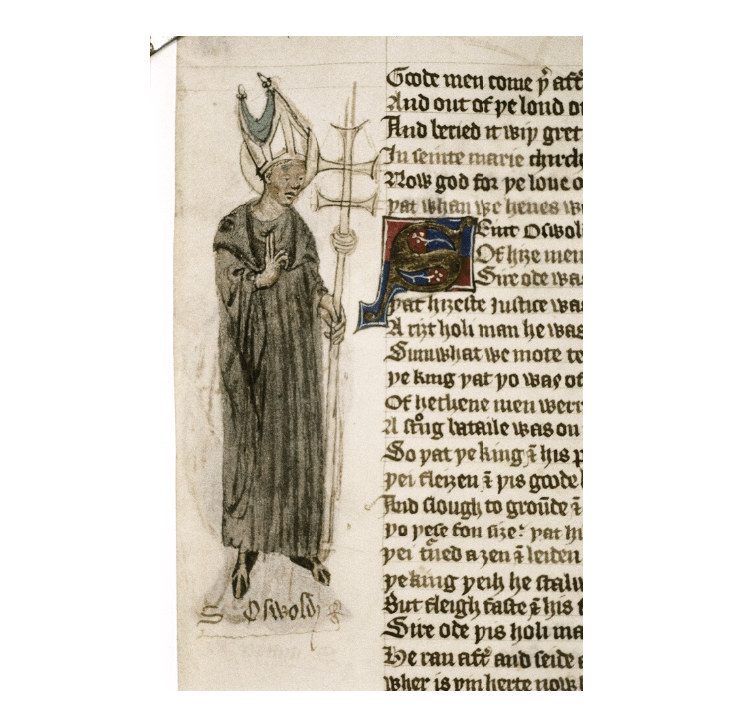 Goode men come þ aft
And out of þe lond o
And beried it wiþ gret
In seinte marie chirch
Now god for þe loue o
þat whan we heues w
Seint Oswol
Of hize men
Sire ode was
þat hizeste Justice was
A riȝt holi man he was
Sumwhat we mote te
þe king þat þo was of
Of hethene men werr
A strog bataile was on
So þat þe king ĩ his p
þei fleizen ĩ þis goode
And slough to groũde ĩ
þo þese fon size: þat hi
þei tũed azen ĩ leiden
þe king þeih he stalw
But fleigh faste ĩ his
Sire ode þis holi ma
He ran aft and seide
wher is þin herte now
S Oswold